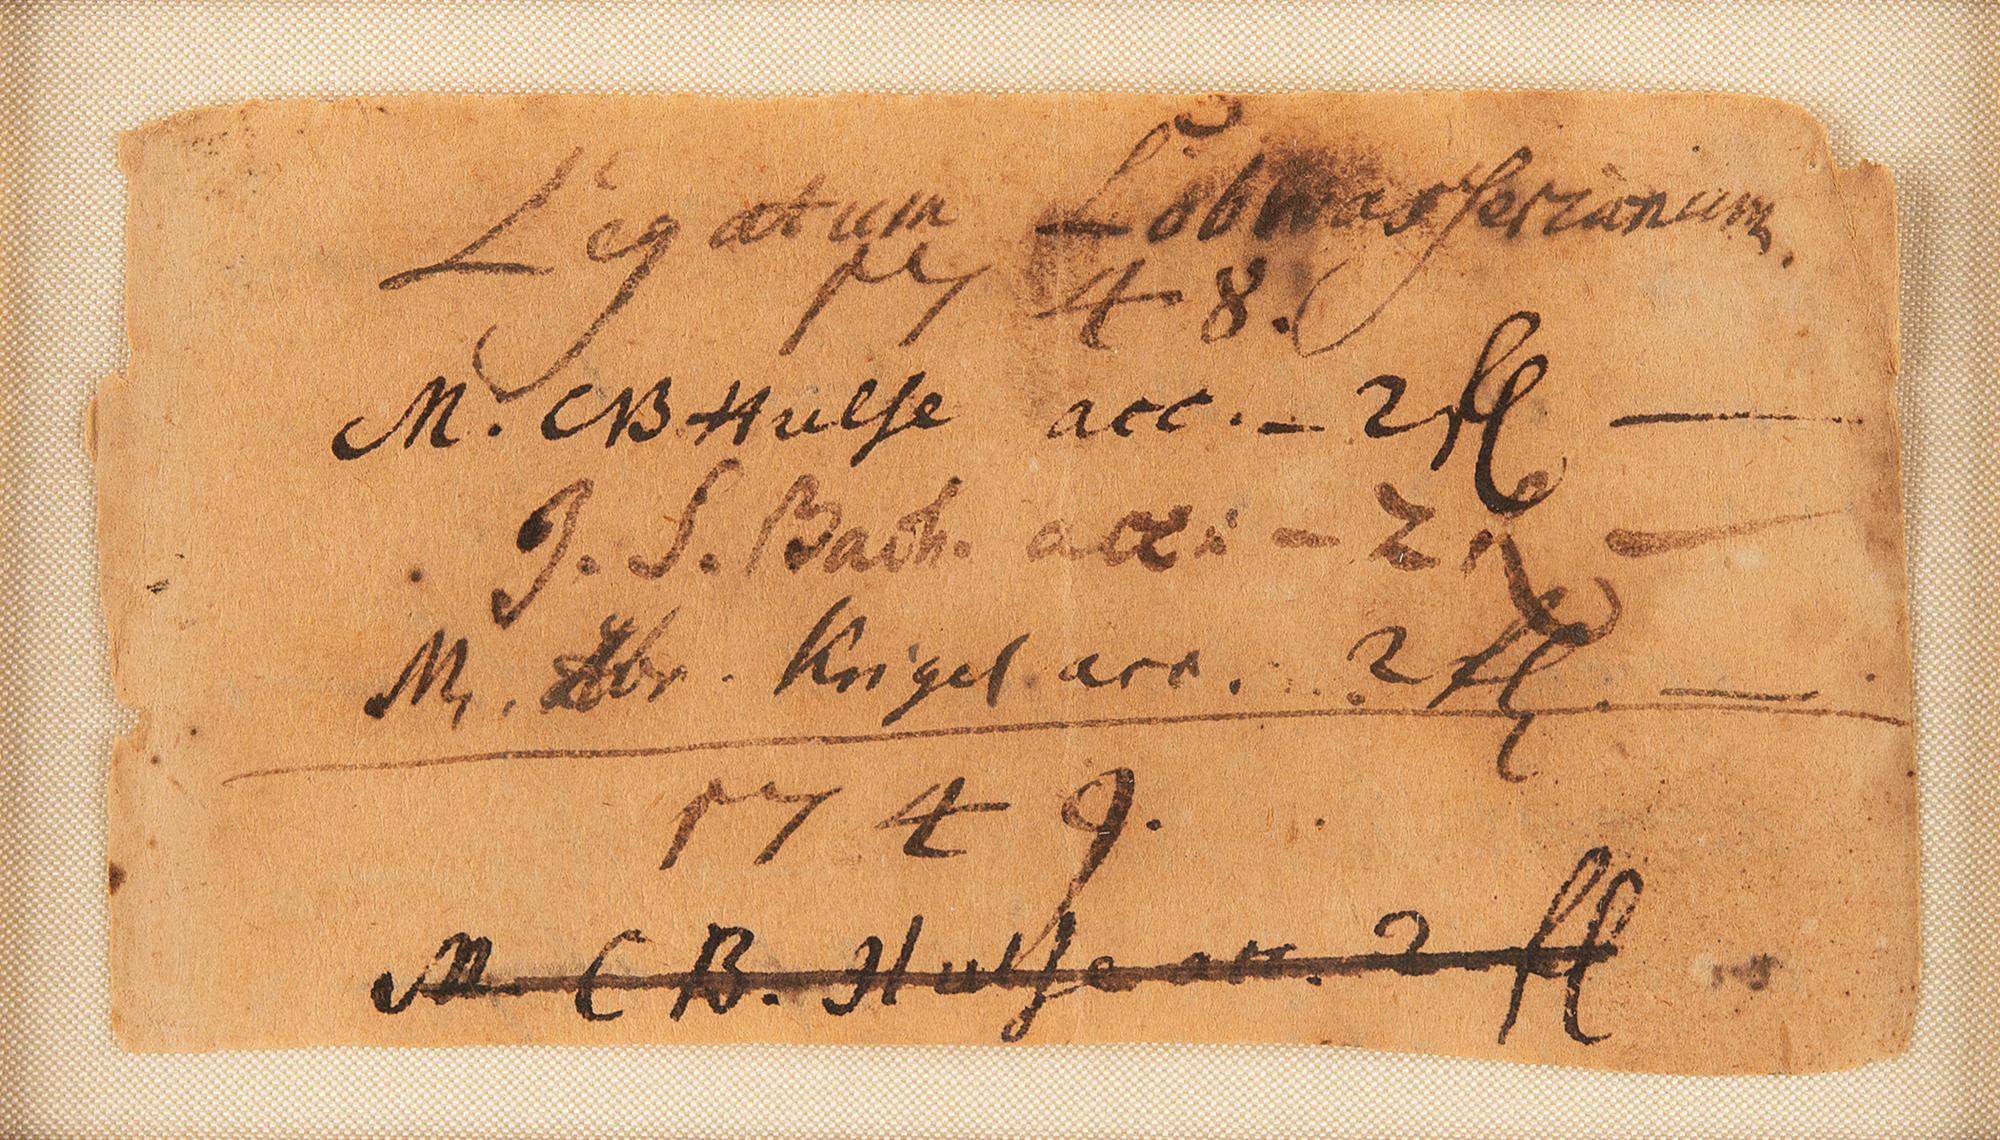 Legatum Lobwasserianum.
1748.
M. CB Hulse acc. – 2 fl —
J. S. Bach. acc: – 2 fl —
M. Abr. Krigel acc. 2 fl. —
1749.
M. C B. Hulse acc. 2 fl